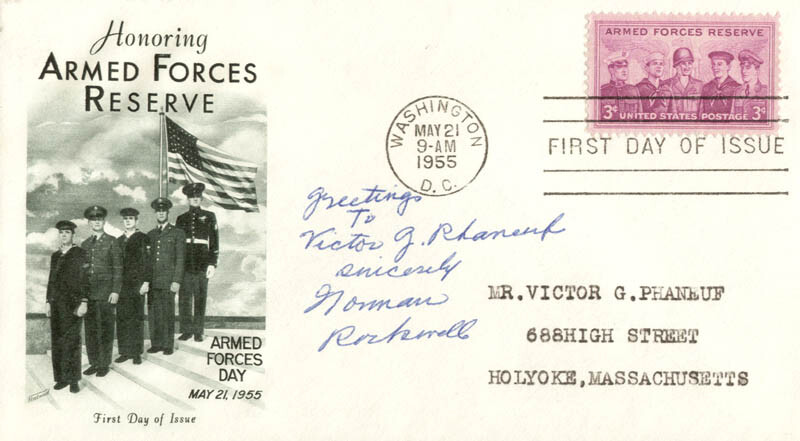 Honoring
ARMED FORCES
RESERVE
ARMED
FORCES
DAY
MAY 21, 1955
First Day of Issue
WASHINGTON
MAY 21
9-AM
1955
D. C.
ARMED FORCES RESERVE
3¢ UNITED STATES POSTAGE 3¢
FIRST DAY OF ISSUE
Greetings
To
Victor G. Phaneuf
sincerely
Norman
Rockwell
MR.VICTOR G.PHANEUF
688HIGH STREET
HOLYOKE,MASSACHUSETTS